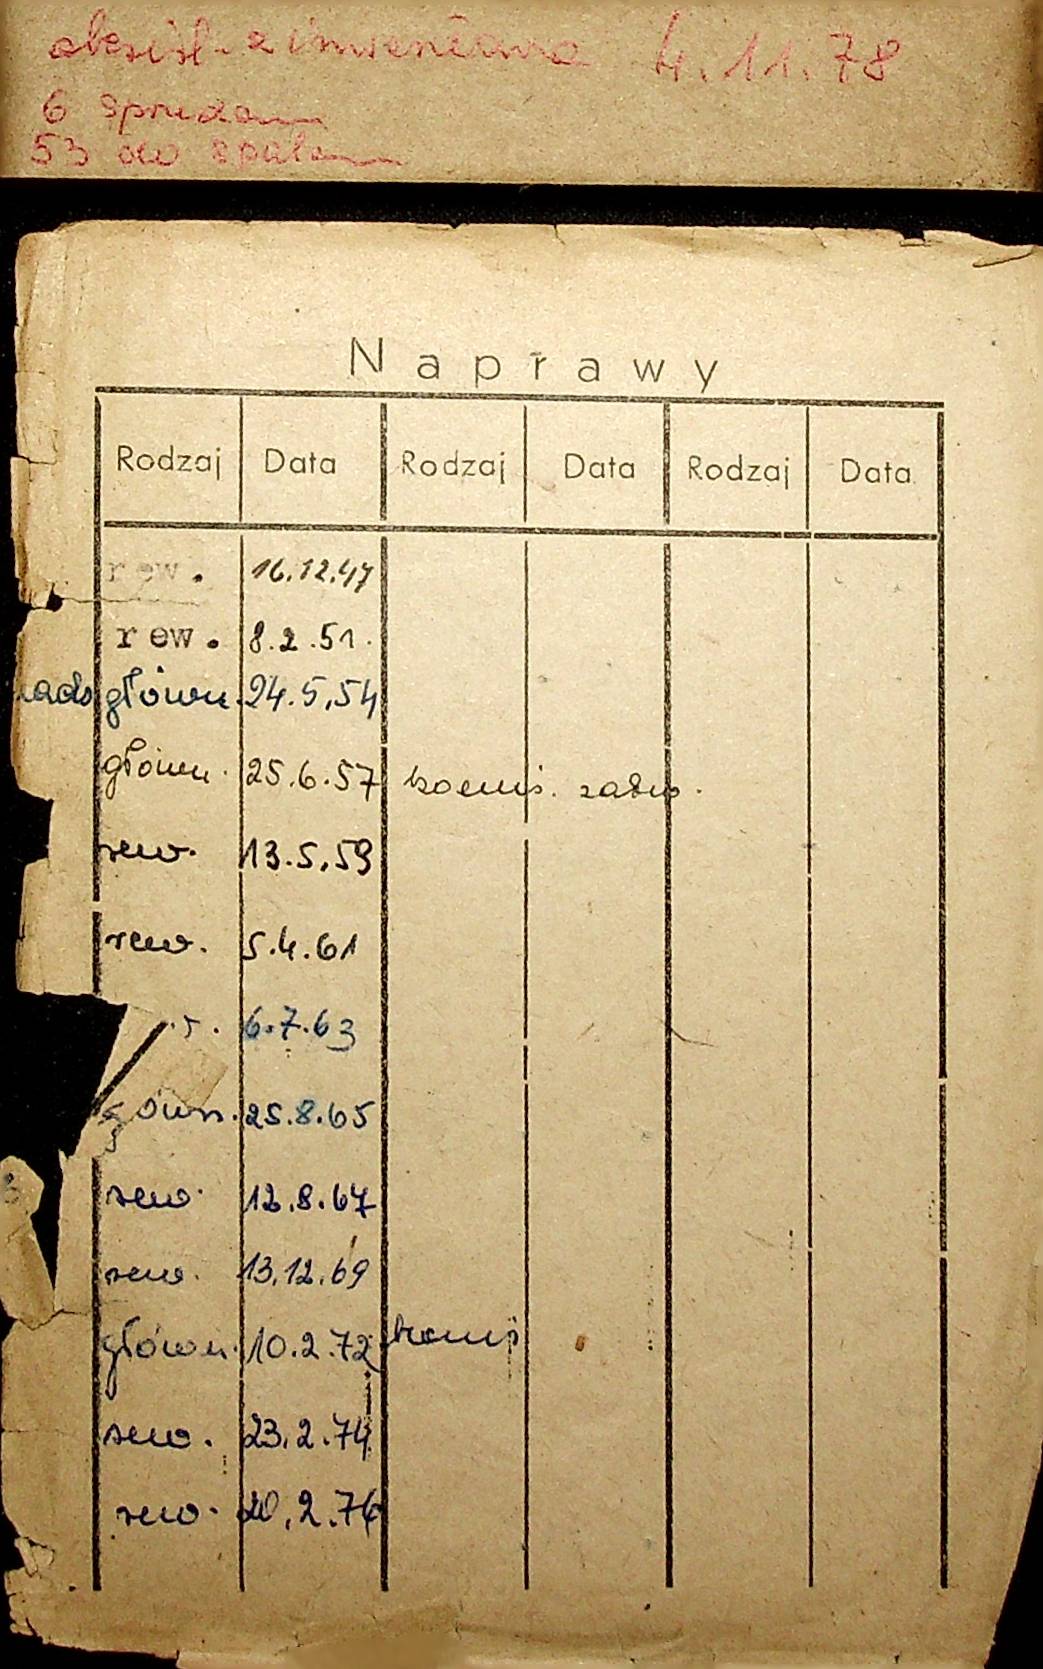 4.11.78
6 sprzedam
53 do spalam
Naprawy
Rodzaj Data Rodzaj Data Rodzaj Data
rew. 16.12.47
rew. 8.2.51.
główn. 24.5.54
główn. 25.6.57
rew. 13.5.59
rew. 5.4.61
6.7.63
25.8.65
rew. 12.8.67
rew. 13.12.69
główn. 10.2.72
rew. 23.2.74
rew. 20.2.76